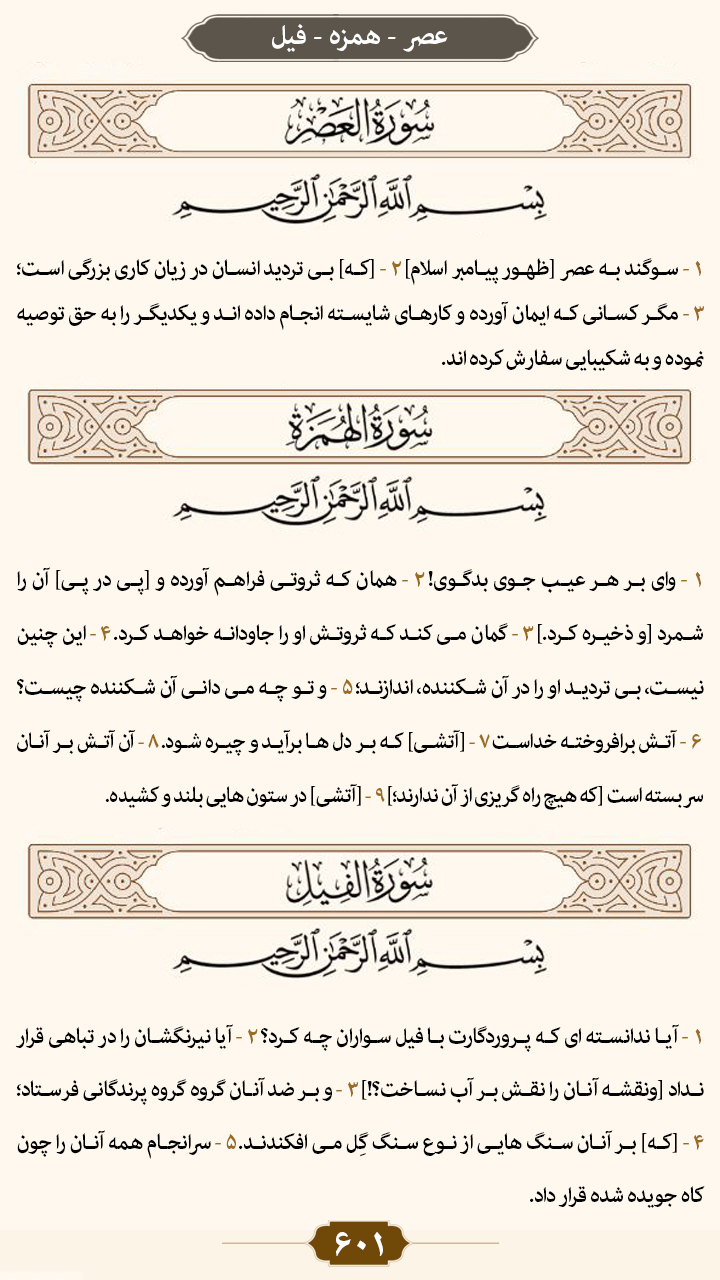 عصر - همزه - فیل
سُورَةُ العَصْرِ
بِسْمِ اللَّهِ الرَّحْمَٰنِ الرَّحِيمِ
۱ - سوگند به عصر [ظهور پیامبر اسلام]۲ - [که] بی تردید انسان در زیان کاری بزرگی است؛
۳ - مگر کسانی که ایمان آورده و کارهای شایسته انجام داده اند و یکدیگر را به حق توصیه
نموده و به شکیبایی سفارش کرده اند.
سُورَةُ الهُمَزَةِ
بِسْمِ اللَّهِ الرَّحْمَٰنِ الرَّحِيمِ
۱ - وای بر هر عیب جوی بدگوی!۲ - همان که ثروتی فراهم آورده و [پی در پی] آن را
شمرد [و ذخیره کرد.]۳ - گمان می کند که ثروتش او را جاودانه خواهد کرد.۴ - این چنین
نیست، بی تردید او را در آن شکننده، اندازند؛۵ - و تو چه می دانی آن شکننده چیست؟
۶ - آتش برافروخته خداست۷ - [آتشی] که بر دل ها برآید و چیره شود.۸ - آن آتش بر آنان
سر بسته است [که هیچ راه گریزی از آن ندارند؛]۹ - [آتشی] در ستون هایی بلند و کشیده.
سُورَةُ الفِيلِ
بِسْمِ اللَّهِ الرَّحْمَٰنِ الرَّحِيمِ
۱ - آیا ندانسته ای که پروردگارت با فیل سواران چه کرد؟۲ - آیا نیرنگشان را در تباهی قرار
نداد [ونقشه آنان را نقش بر آب نساخت؟!]۳ - و بر ضد آنان گروه گروه پرندگانی فرستاد؛
۴ - [که] بر آنان سنگ هایی از نوع سنگ گِل می افکندند.۵ - سرانجام همه آنان را چون
کاه جویده شده قرار داد.
۶۰۱